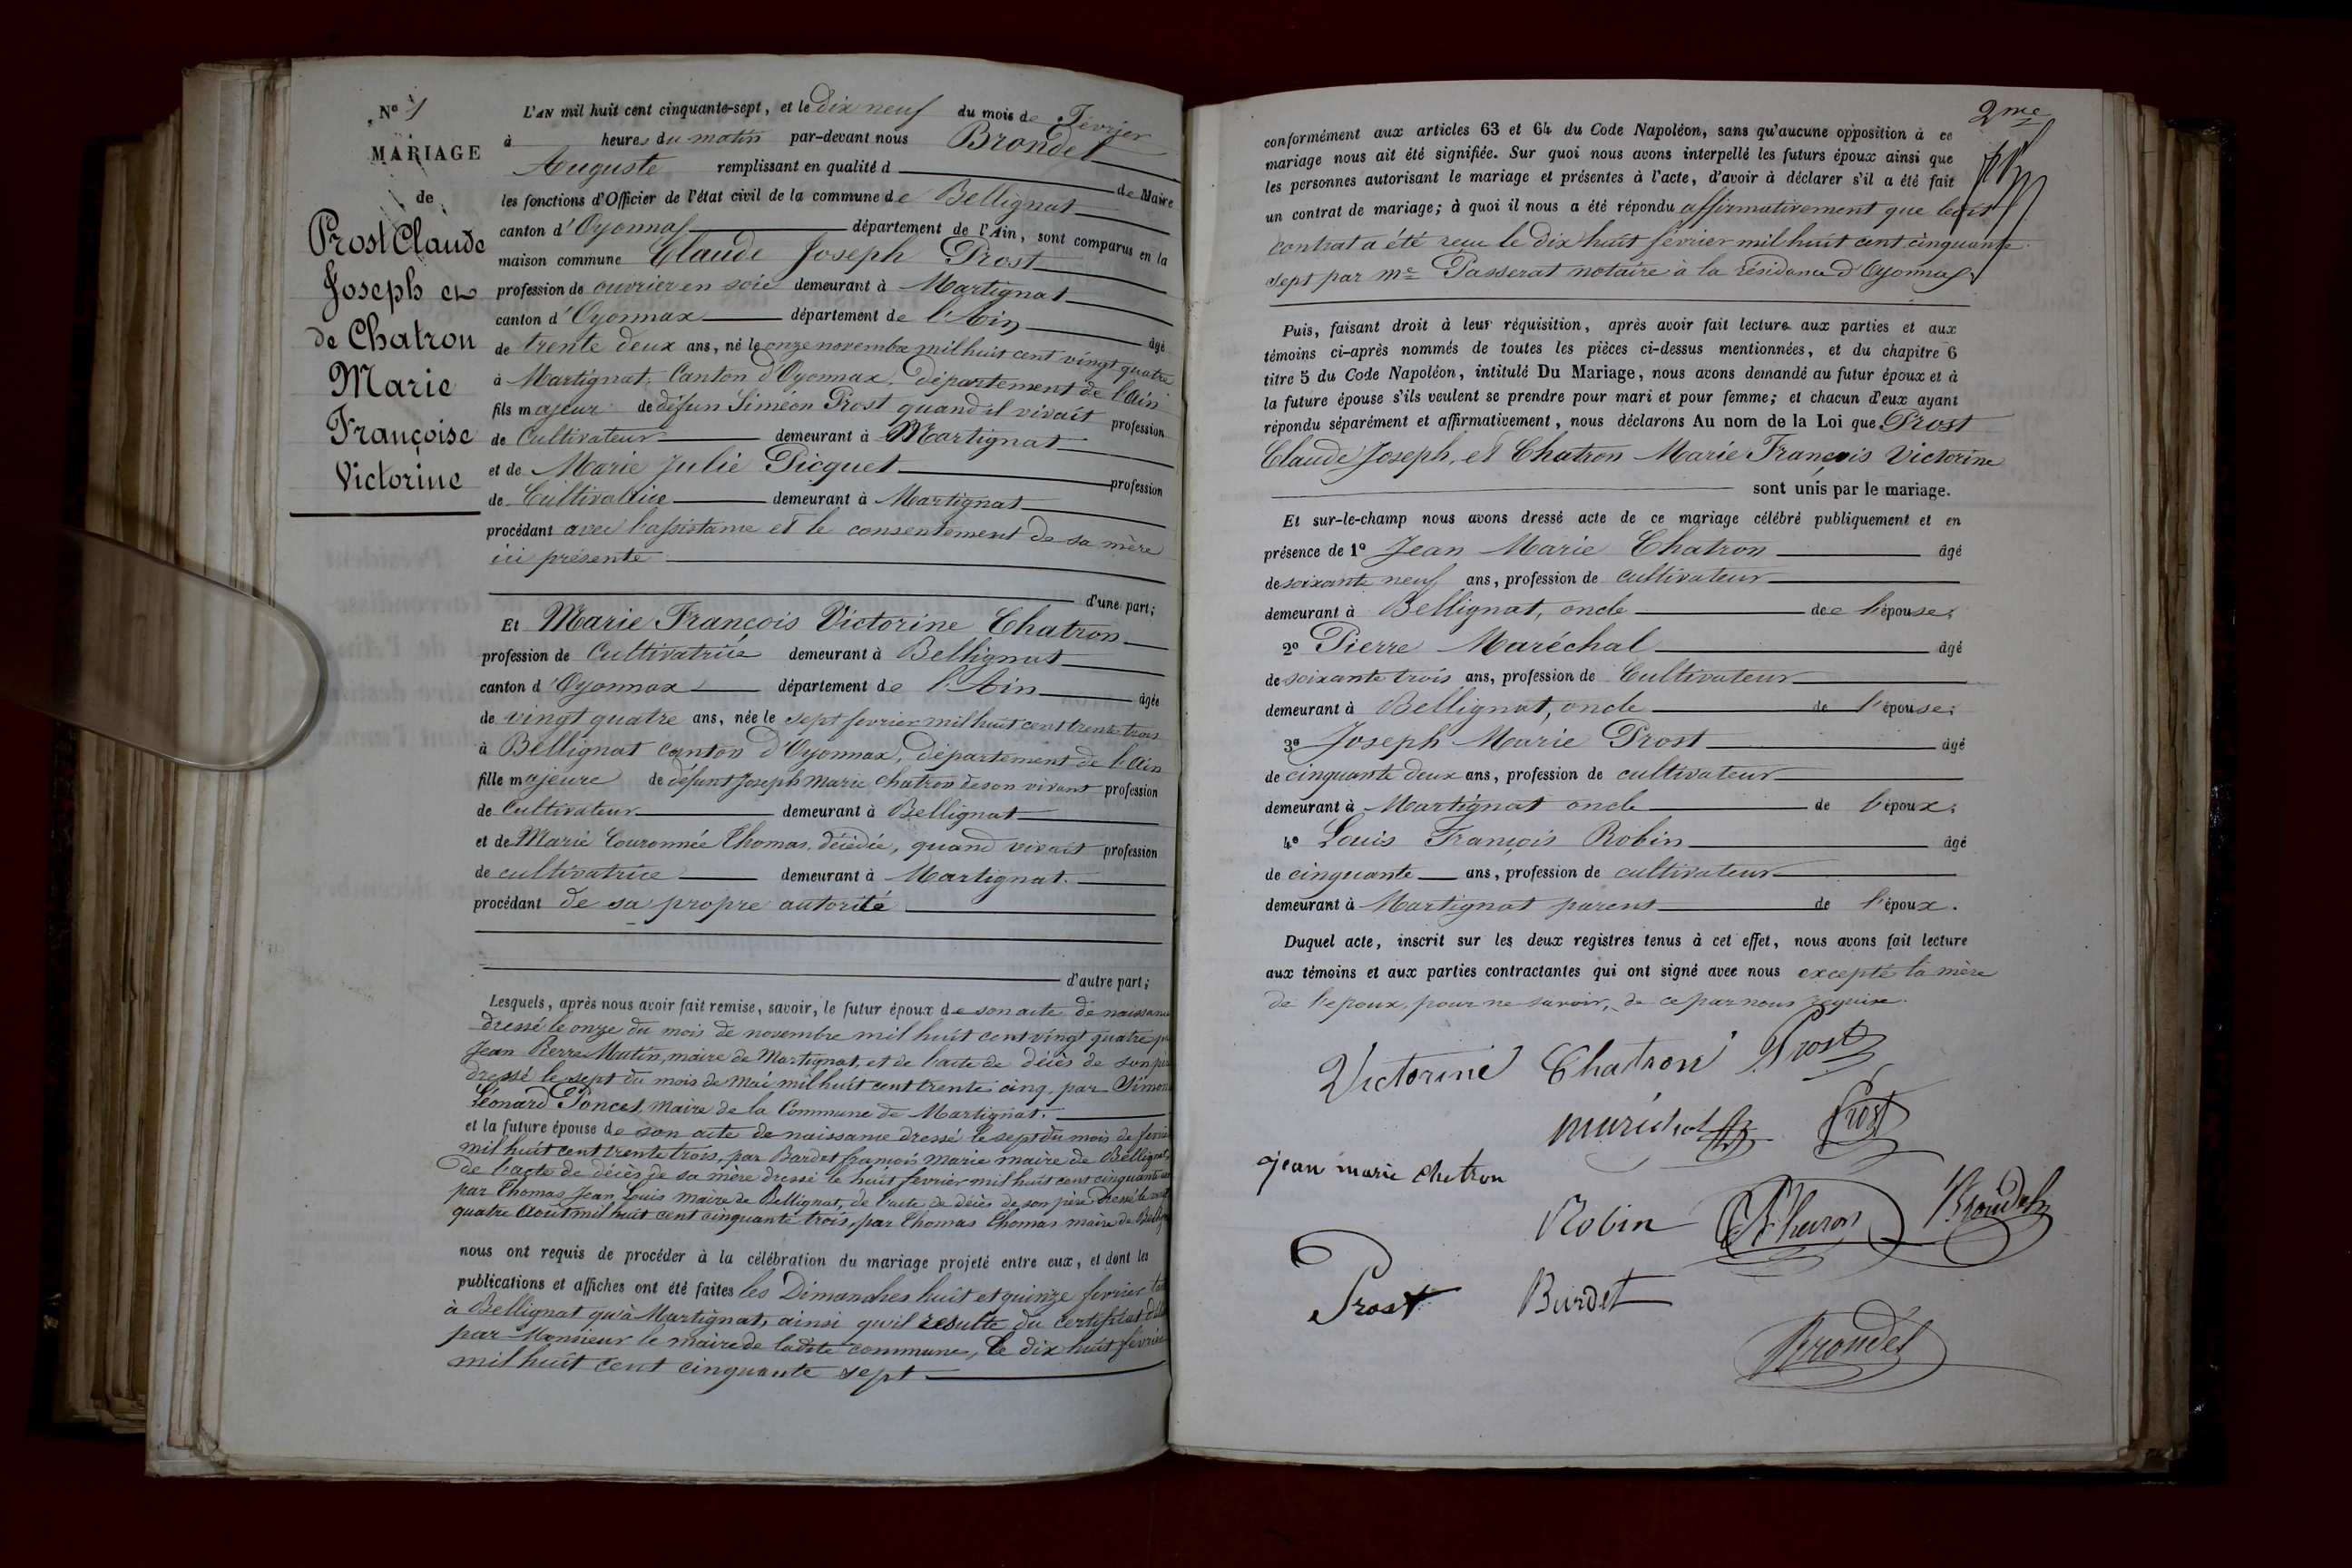 N° 1
MARIAGE
de
Prost Claude
Joseph et
de Chatron
Marie
Françoise
Victorine
L'AN mil huit cent cinquante-sept, et le dix neuf du mois de Février
à heures du matin par-devant nous Brondel
Auguste remplissant en qualité d de Maire
les fonctions d'Officier de l'état civil de la commune de Bellignat
canton d'Oyonnax département de l'Ain, sont comparus en la
maison commune Claude Joseph Prost
profession de ouvrier en soie demeurant à Martignat
canton d'Oyonnax département de l'Ain âgé
de trente deux ans, né le onze novembre mil huit cent vingt quatre
à Martignat, Canton d'Oyonnax, département de l'Ain
fils majeur de défun Siméon Prost quand il vivait profession
de Cultivateur demeurant à Martignat
et de Marie Julie Picquet profession
de Cultivatrice demeurant à Martignat
procédant avec l'assistance et le consentement de sa mère
ici présente
d'une part;
Et Marie François Victorine Chatron
profession de Cultivatrice demeurant à Bellignat
canton d'Oyonnax département de l'Ain âgée
de vingt quatre ans, née le sept fevrier mil huit cent trente trois
à Bellignat canton d'Oyonnax, département de l'Ain
fille majeure de défunt Joseph Marie Chatron de son vivant profession
de Cultivateur demeurant à Bellignat
et de Marie Couronnée Thomas, décédée, quand vivait profession
de cultivatrice demeurant à Martignat.
procédant de sa propre autorité
d'autre part;
Lesquels, après nous avoir fait remise, savoir, le futur époux de son acte de naissance
dressé le onze du mois de novembre mil huit cent vingt quatre
Jean Pierre Mutin, maire de Martignat, et de l'acte de décès de son
dressé le sept du mois de Mai mil huit cent trente cinq, par Simon
Léonard Poncet, Maire de la Commune de Martignat.
et la future épouse de son acte de naissance dressé le sept du mois de
mil huit cent trente trois, par Bardet françois Marie maire de Bellignat,
de l'acte de décès de sa mère dressé le huit fevrier mil huit cent cinquante
par Thomas Jean Louis maire de Bellignat, de l'acte de décès de son père dressé le
quatre Août mil huit cent cinquante trois, par Thomas Thomas maire de
nous ont requis de procéder à la célébration du mariage projeté entre eux, et dont les
publications et affiches ont été faites les Dimanches huit et quinze fevrier
à Bellignat qu'à Martignat, ainsi qu'il resulte du certificat
par Monsieur le maire de ladite commune, le dix huit fevrier
mil huit cent cinquante sept
2me
conformément aux articles 63 et 64 du Code Napoléon, sans qu'aucune opposition à ce
mariage nous ait été signifiée. Sur quoi nous avons interpellé les futurs époux ainsi que
les personnes autorisant le mariage et présentes à l'acte, d'avoir à déclarer s'il a été fait
un contrat de mariage; à quoi il nous a été répondu affirmativement que ledit
contrat a été reçu le dix huit fevrier mil huit cent cinquante
sept par me Passerat notaire à la résidence d'Oyonnax
Puis, faisant droit à leur réquisition, après avoir fait lecture aux parties et aux
témoins ci-après nommés de toutes les pièces ci-dessus mentionnées, et du chapitre 6
titre 5 du Code Napoléon, intitulé Du Mariage, nous avons demandé au futur époux et à
la future épouse s'ils veulent se prendre pour mari et pour femme; et chacun d'eux ayant
répondu séparément et affirmativement, nous déclarons Au nom de la Loi que Prost
Claude Joseph, et Chatron Marie François Victorine
sont unis par le mariage.
Et sur-le-champ nous avons dressé acte de ce mariage célébré publiquement et en
présence de 1° Jean Marie Chatron âgé
de soixante neuf ans, profession de cultivateur
demeurant à Bellignat, oncle de l'épouse;
2° Pierre Maréchal âgé
de soixante trois ans, profession de Cultivateur
demeurant à Bellignat, oncle de l'épouse;
3° Joseph Marie Prost âgé
de cinquante deux ans, profession de cultivateur
demeurant à Martignat oncle de l'époux;
4° Louis François Robin âgé
de cinquante ans, profession de cultivateur
demeurant à Martignat parent de l'époux.
Duquel acte, inscrit sur les deux registres tenus à cet effet, nous avons fait lecture
aux témoins et aux parties contractantes qui ont signé avec nous excepté la mère
de l'epoux, pour ne savoir, de ce par nous requise.
Victorine Chatron Prost
maréchal Prost
jean marie chetron
Robin Brondel
Prost Burdet
Brondel